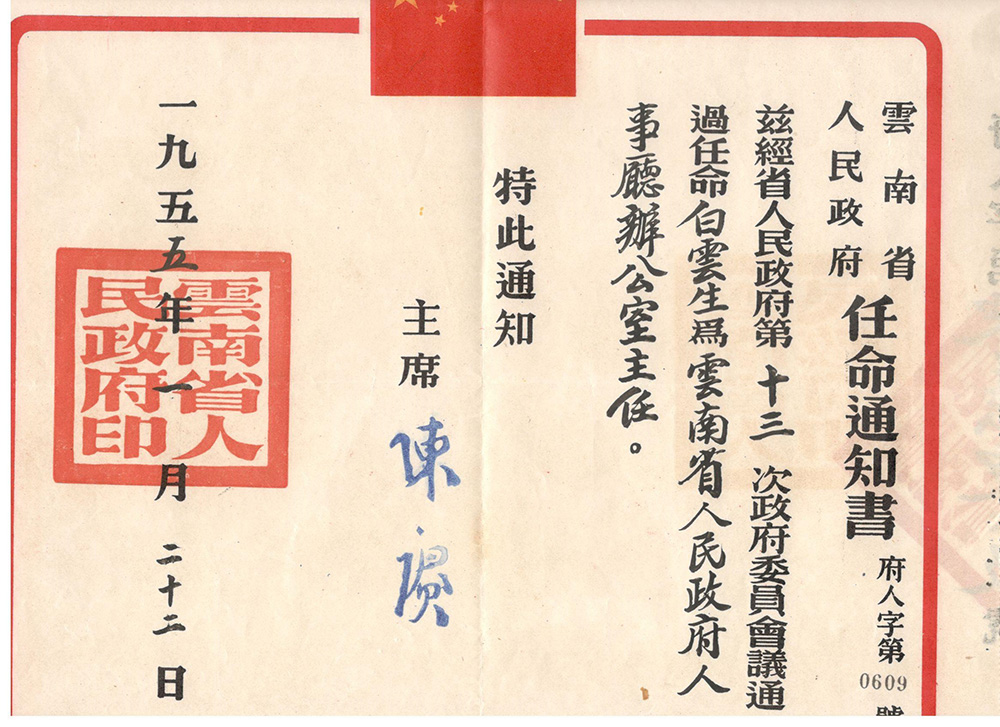 雲南省
人民政府
任命通知書
府人字第0609號
茲經省人民政府第十三次政府委員會議通
過任命白雲生爲雲南省人民政府人
事廳辦公室主任。
特此通知
主席 陳賡
一九五五年一月二十二日
雲南省人
民政府印